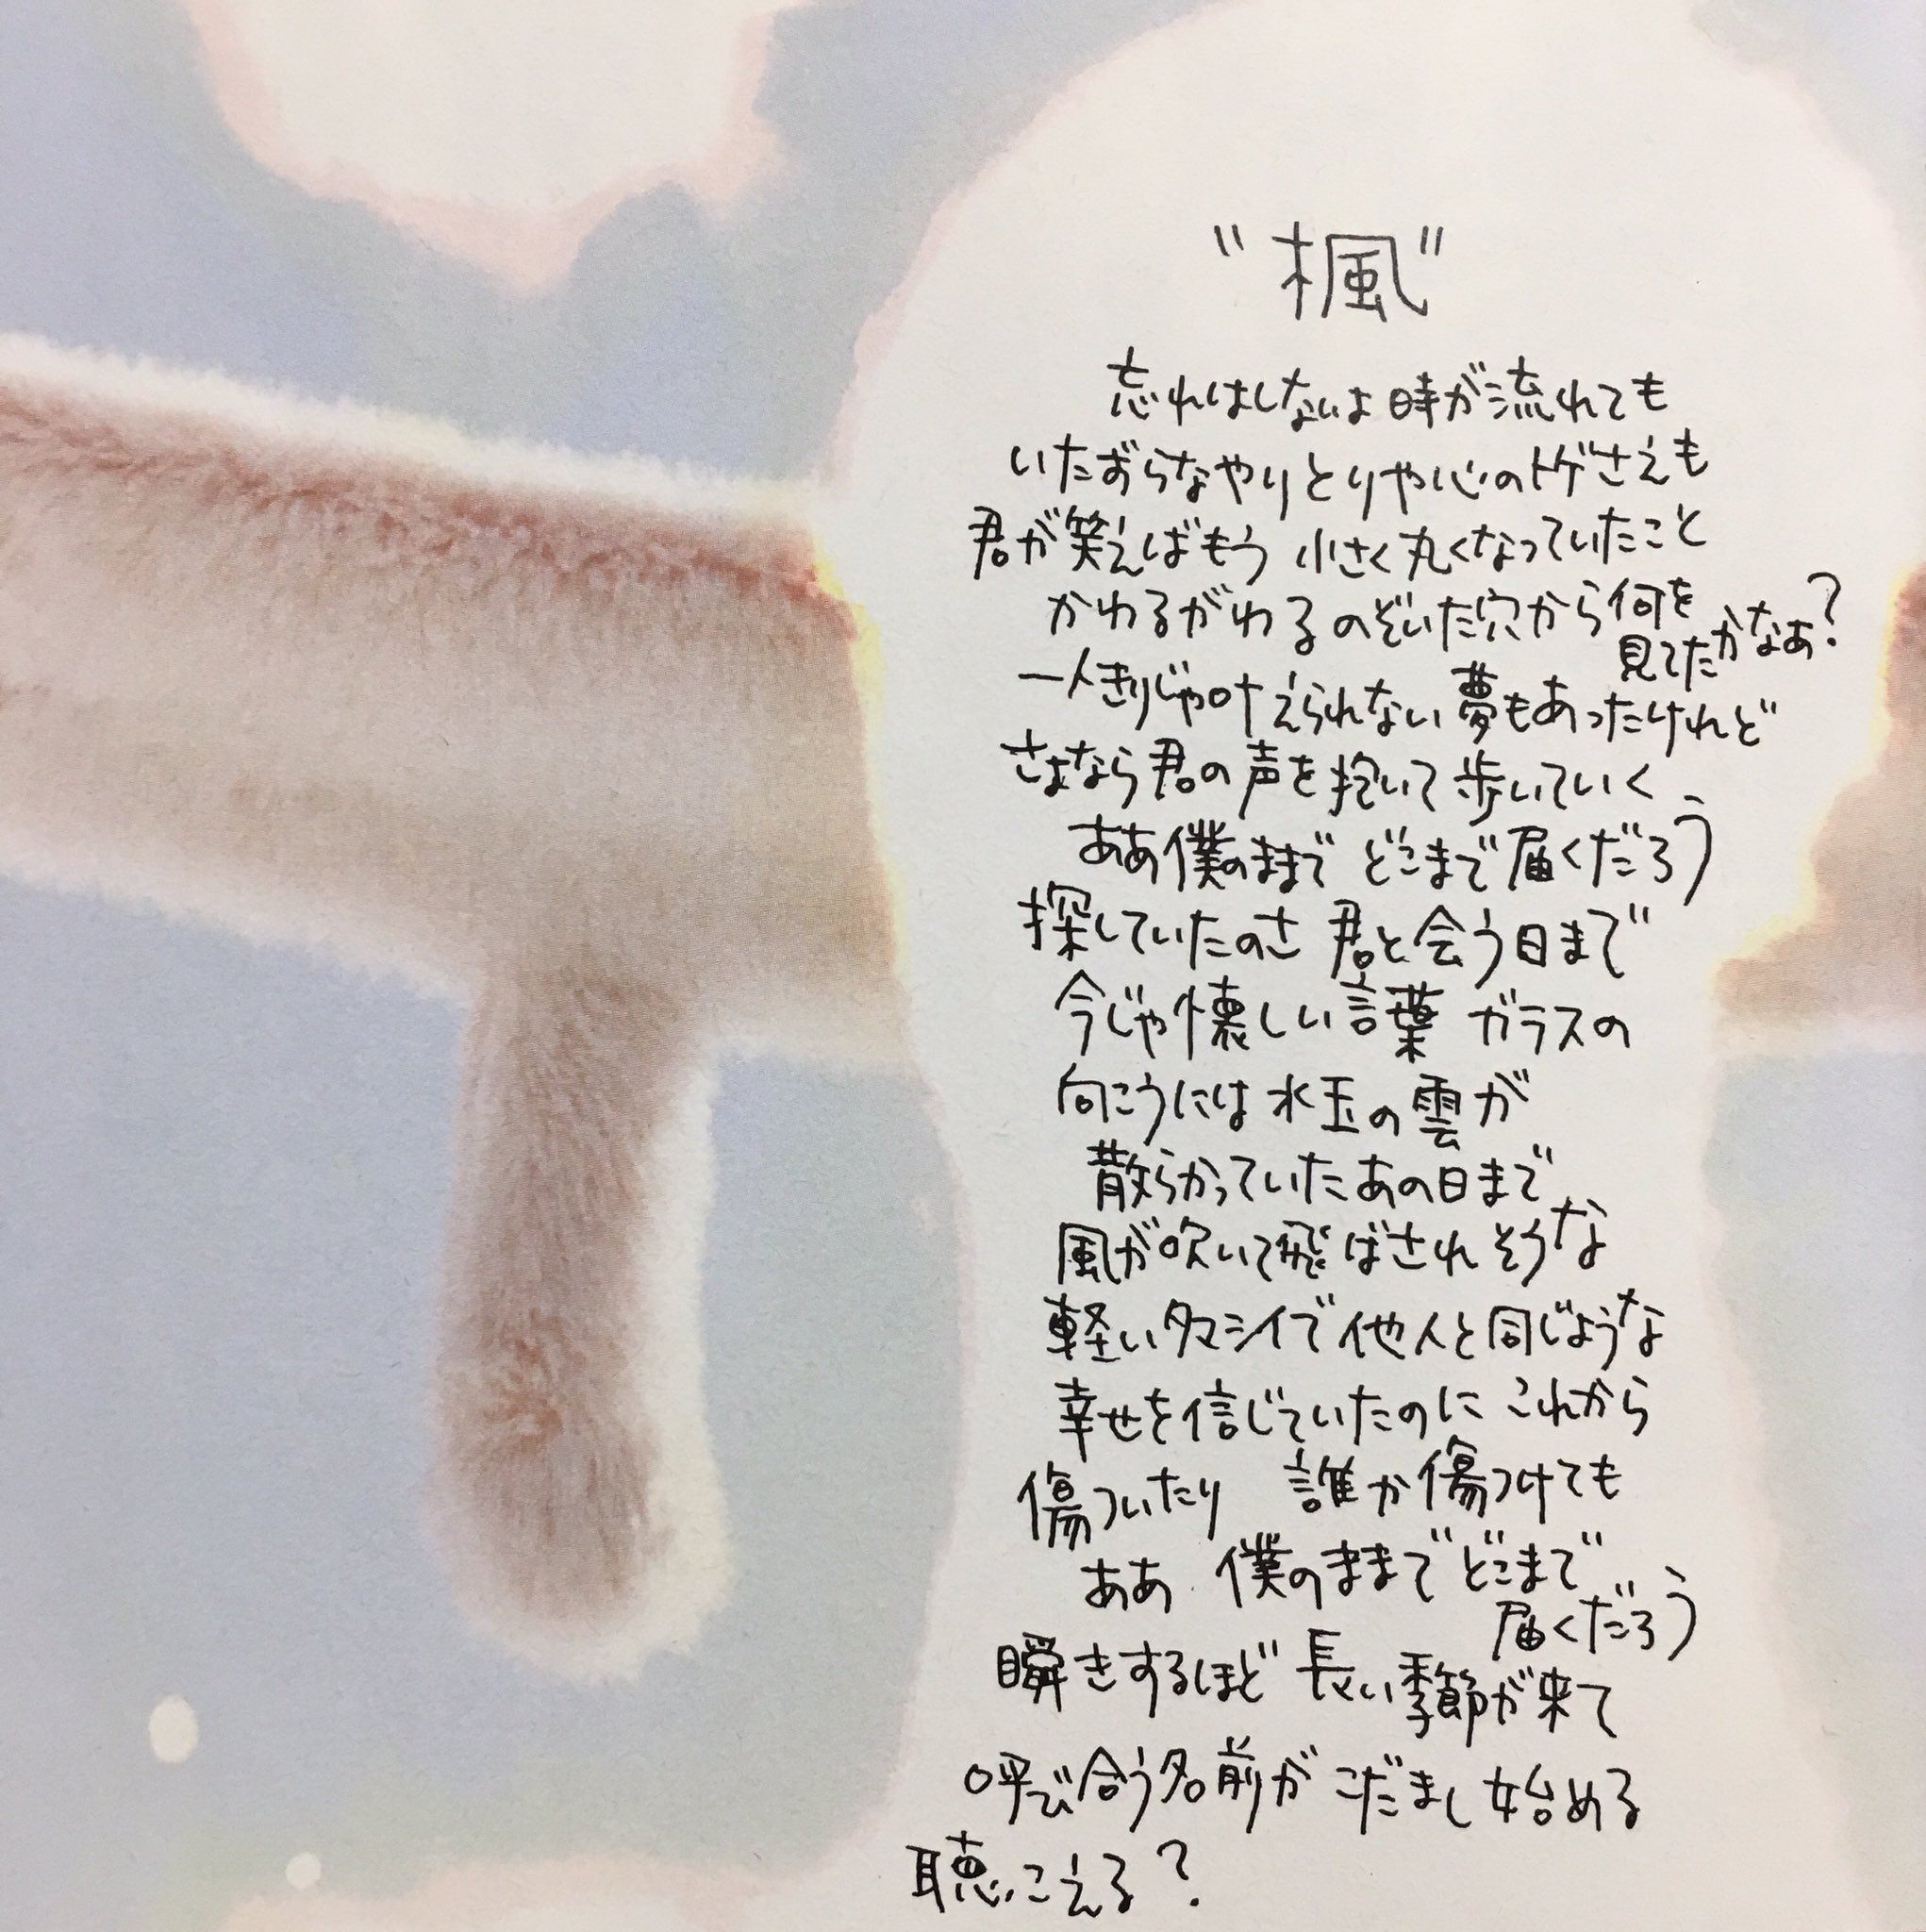 "楓"
忘れはしないよ 時が流れても
いたずらなやりとりや心のトゲさえも
君が笑えばもう 小さく丸くなっていたこと
かわるがわるのぞいた穴から何を
見てたかなぁ?
一人きりじゃ叶えられない夢もあったけれど
さよなら 君の声を抱いて歩いていく
ああ 僕のままで どこまで届くだろう
探していたのさ 君と会う日まで
今じゃ懐しい言葉 ガラスの
向こうには 水玉の雲が
散らかっていた あの日まで
風が吹いて飛ばされそうな
軽いタマシイで 他人と同じような
幸せを信じていたのに これから
傷ついたり 誰か傷つけても
ああ 僕のままで どこまで
届くだろう
瞬きするほど 長い季節が来て
呼び合う名前が こだまし始める
聴こえる?